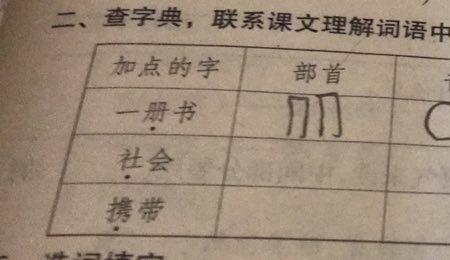 二、查字典，联系课文理解词语中
加点的字 部首
一册书
社会
携带